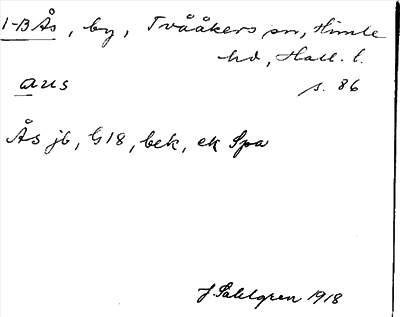 1-B Ås, by, Tvååkers sn, Himle
hd, Hall. l.
aus s. 86
Ås jb, G18, bek, ek Spa
J. Sahlgren 1918